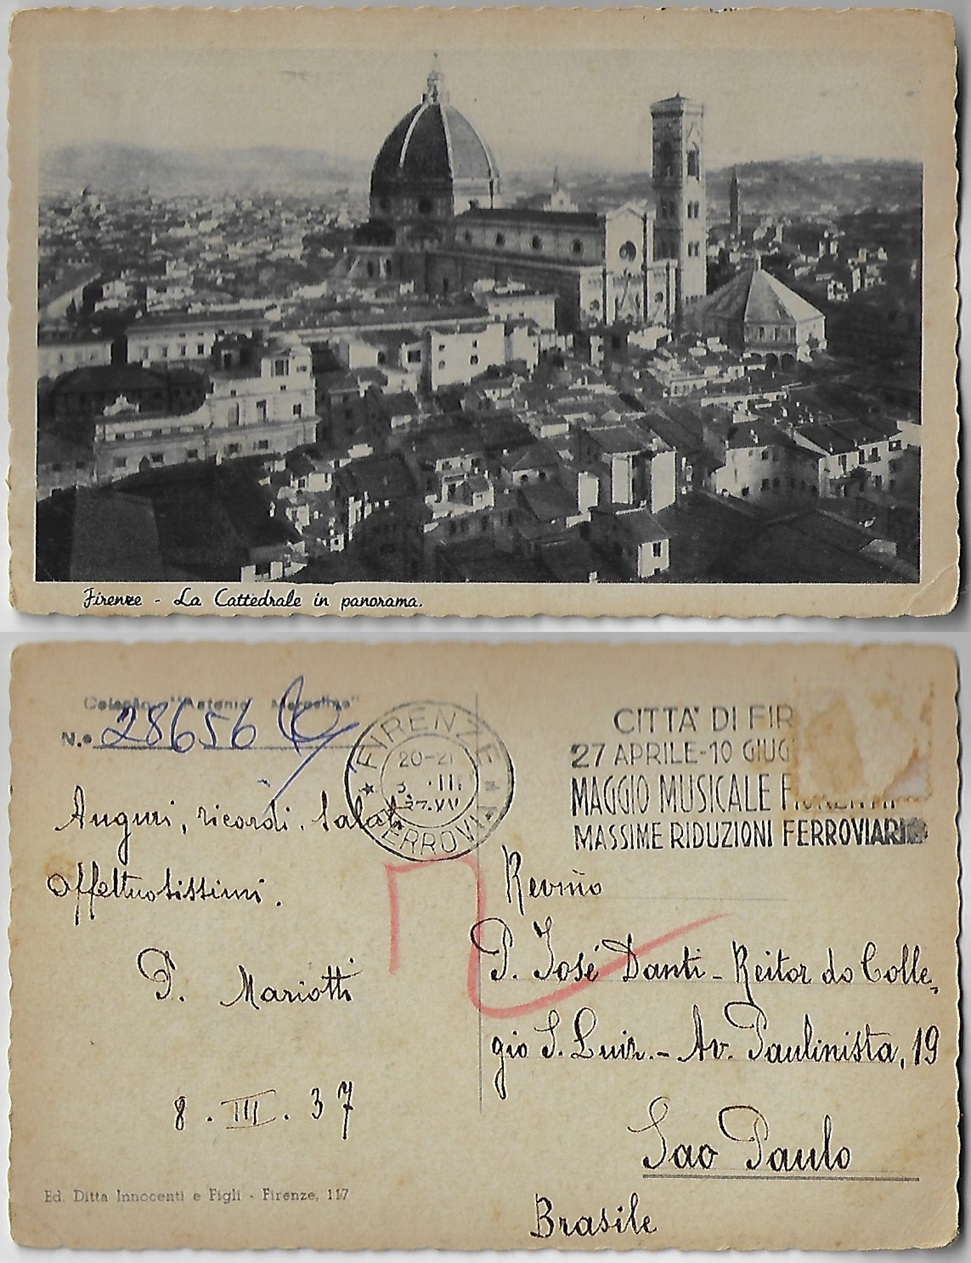 Firenze - La Cattedrale in panorama.
Coleção "Antonio
N.º 28656
FIRENZE
20-21
III
FERROVIA
CITTA' DI FIR
27 APRILE-10 GIUG
MAGGIO MUSICALE FIORENTI
MASSIME RIDUZIONI FERROVIARIE
Auguri, ricordi. Saluti
affettuosissimi.
P. Mariotti
8. III. 37
Revmo
P. José Danti - Reitor do Colle-
gio S. Luiz. - Av. Paulinista, 19
Sao Paulo
Brasile
Ed. Ditta Innocenti e Figli - Firenze, 117